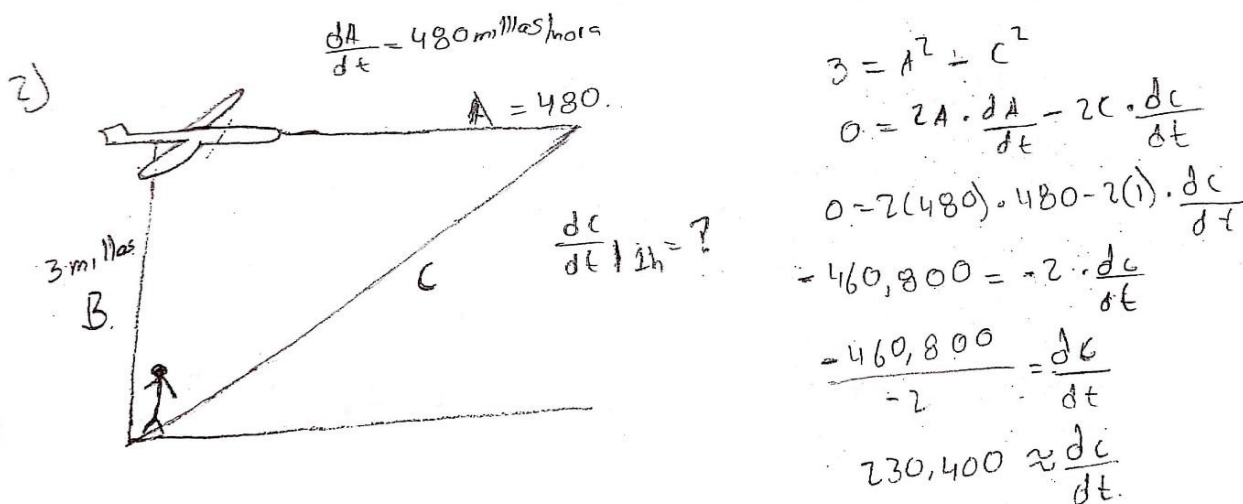 2)
dA/dt = 480 millas/hora
A = 480.
3 millas
B.
C
dc/dt | 1h = ?
3 = A² - C²
0 = 2A · dA/dt - 2C · dc/dt
0 = 2(480) · 480 - 2(1) · dc/dt
- 460,800 = - 2 · dc/dt
-460,800/-2 = dc/dt
230,400 ≈ dc/dt.